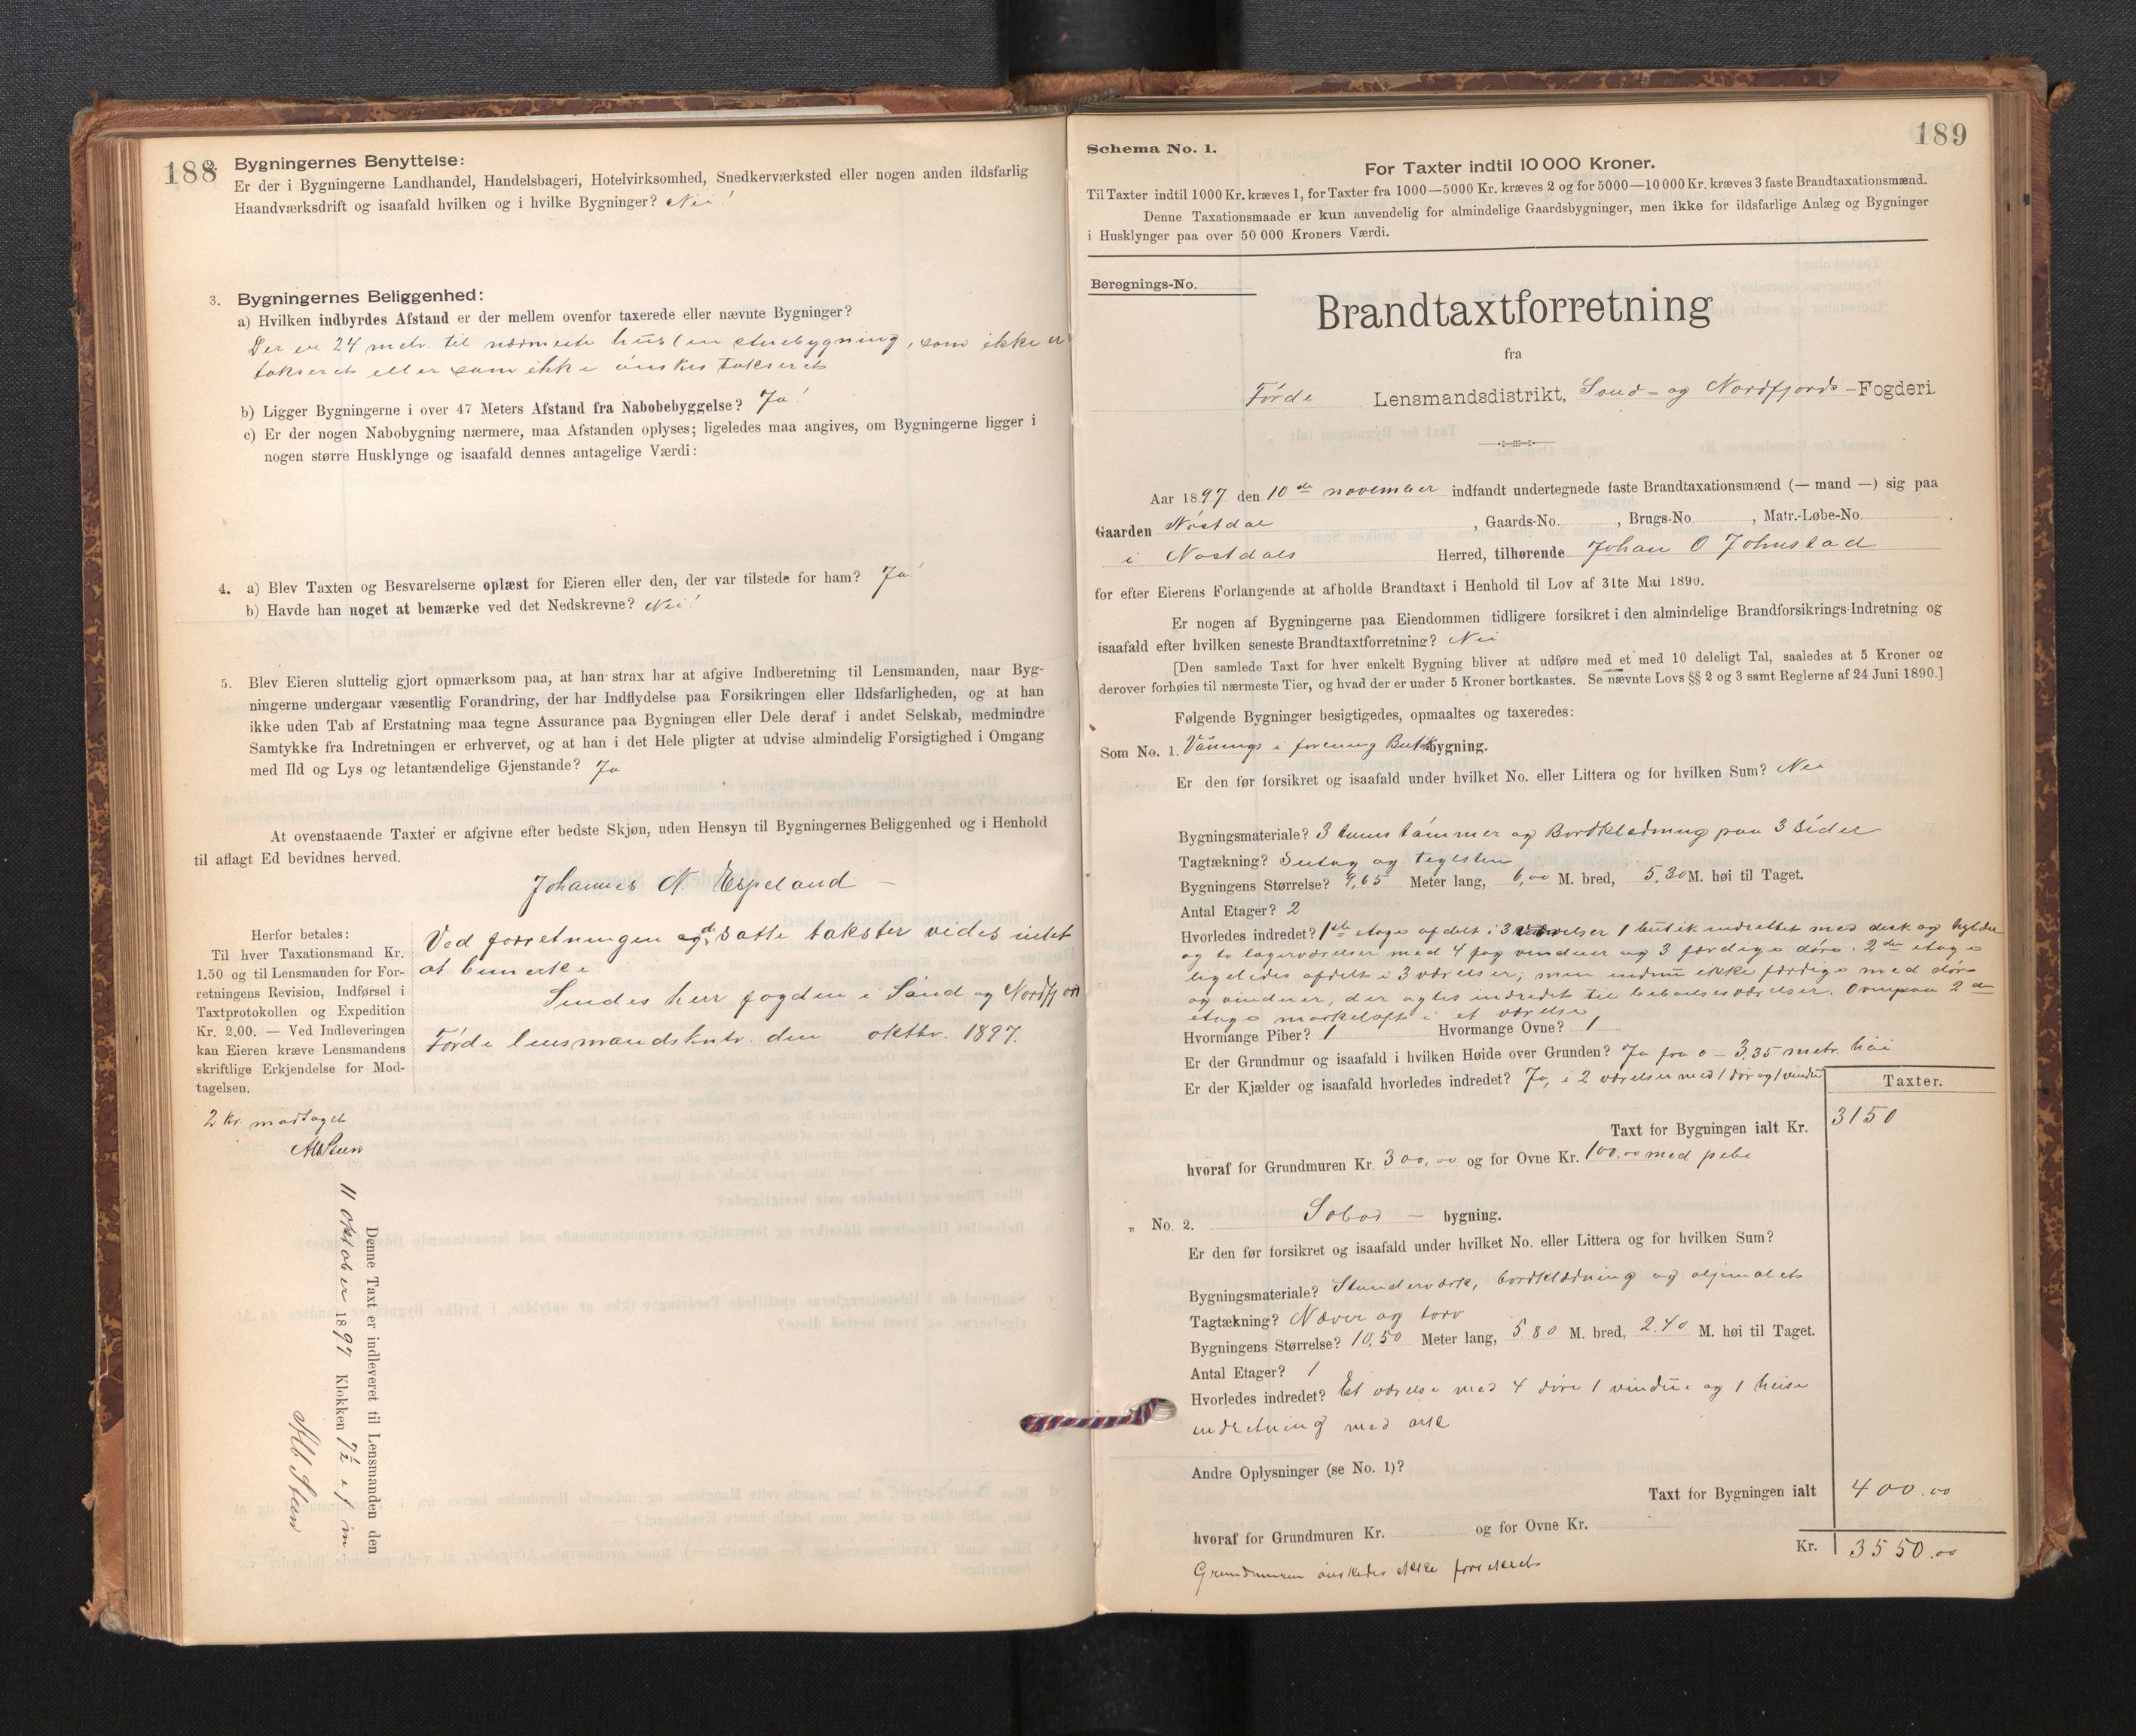 188
2. Bygningernes Benyttelse:
Er der i Bygningerne Landhandel, Handelsbageri, Hotelvirksomhed, Snedkerværksted eller nogen anden ildsfarlig
Haandværksdrift og isaafald hvilken og i hvilke Bygninger? Nei!
3. Bygningernes Beliggenhed:
a) Hvilken indbyrdes Afstand er der mellem ovenfor taxerede eller nævnte Bygninger?
Der er 24 metr. til nærmeste hus (en stuebygning, som ikke er
takseret eller som ikke ønskes takseret
b) Ligger Bygningerne i over 47 Meters Afstand fra Nabobebyggelse? Ja!
c) Er der nogen Nabobygning nærmere, maa Afstanden oplyses; ligeledes maa angives, om Bygningerne ligger i
nogen større Husklynge og isaafald dennes antagelige Værdi:
4. a) Blev Taxten og Besvarelserne oplæst for Eieren eller den, der var tilstede for ham? Ja!
b) Havde han noget at bemærke ved det Nedskrevne? Nei!
5. Blev Eieren sluttelig gjort opmærksom paa, at han strax har at afgive Indberetning til Lensmanden, naar Byg-
ningerne undergaar væsentlig Forandring, der har Indflydelse paa Forsikringen eller Ildsfarligheden, og at han
ikke uden Tab af Erstatning maa tegne Assurance paa Bygningen eller Dele deraf i andet Selskab, medmindre
Samtykke fra Indretningen er erhvervet, og at han i det Hele pligter at udvise almindelig Forsigtighed i Omgang
med Ild og Lys og letantændelige Gjenstande? Ja
At ovenstaaende Taxter er afgivne efter bedste Skjøn, uden Hensyn til Bygningernes Beliggenhed og i Henhold
til aflagt Ed bevidnes herved.
Johannes N. Espeland
Herfor betales:
Til hver Taxationsmand Kr.
1.50 og til Lensmanden for For-
retningens Revision, Indførsel i
Taxtprotokollen og Expedition
Kr. 2.00. — Ved Indleveringen
kan Eieren kræve Lensmandens
skriftlige Erkjendelse for Mod-
tagelsen.
Ved forretningen og de satte takster vides intet
at bemerke
Sendes herr fogden i Sønd og Nordfjord
Førde lensmandskntr. den oktbr. 1897.
2 Kr. modtaget
Denne Taxt er indleveret til Lensmanden den
11 oktober 1897 Klokken 7½ ef m.
189
Schema No. 1.
For Taxter indtil 10 000 Kroner.
Til Taxter indtil 1000 Kr. kræves 1, for Taxter fra 1000—5000 Kr. kræves 2 og for 5000—10 000 Kr. kræves 3 faste Brandtaxationsmænd.
Denne Taxationsmaade er kun anvendelig for almindelige Gaardsbygninger, men ikke for ildsfarlige Anlæg og Bygninger
i Husklynger paa over 50 000 Kroners Værdi.
Beregnings-No.
Brandtaxtforretning
fra
Førde Lensmandsdistrikt, Sønd- og Nordfjords-Fogderi.
Aar 1897 den 10de november indfandt undertegnede faste Brandtaxationsmænd (— mand —) sig paa
Gaarden Nøstdal, Gaards-No. , Brugs-No. , Matr.-Løbe-No.
i Nøstdals Herred, tilhørende Johan O Johnstad
for efter Eierens Forlangende at afholde Brandtaxt i Henhold til Lov af 31te Mai 1890.
Er nogen af Bygningerne paa Eiendommen tidligere forsikret i den almindelige Brandforsikrings-Indretning og
isaafald efter hvilken seneste Brandtaxtforretning? Nei
[Den samlede Taxt for hver enkelt Bygning bliver at udføre med et med 10 deleligt Tal, saaledes at 5 Kroner og
derover forhøies til nærmeste Tier, og hvad der er under 5 Kroner bortkastes. Se nævnte Lovs §§ 2 og 3 samt Reglerne af 24 Juni 1890.]
Følgende Bygninger besigtigedes, opmaaltes og taxeredes:
Som No. 1. Vånings i forening Butikbygning.
Er den før forsikret og isaafald under hvilket No. eller Littera og for hvilken Sum? Nei
Bygningsmateriale? 3 tums tømmer og Bordklædning paa 3 Sider
Tagtækning? Sutag og teglsten
Bygningens Størrelse? 9,65 Meter lang, 6,00 M. bred, 5,30 M. høi til Taget.
Antal Etager? 2
Hvorledes indredet? 1ste etage afdelt i 3 værelser 1 butik indrettet med disk og hylder
og to lagerværelser med 4 fag vinduer og 3 færdige døre. 2den etage
ligeledes afdelt i 3 værelser, men endnu ikke færdige med døre
og vinduer, der agtes indredet til beboelsesværelser. Ovenpaa 2den
etage mørkeloft i et værelse
Hvormange Piber? 1 Hvormange Ovne? 1
Er der Grundmur og isaafald i hvilken Høide over Grunden? Ja fra 0 - 3,35 metr. høi
Er der Kjælder og isaafald hvorledes indredet? Ja, i 2 værelser med 1 dør og 1 vindu
Taxter.
Taxt for Bygningen ialt Kr. 3150
hvoraf for Grundmuren Kr. 300,00 og for Ovne Kr. 100,00 med pibe
„ No. 2. Sobod — bygning.
Er den før forsikret og isaafald under hvilket No. eller Littera og for hvilken Sum?
Bygningsmateriale? Stenderværk, bordklædning og oljemalet
Tagtækning? Næver og torv
Bygningens Størrelse? 10,50 Meter lang, 5 80 M. bred, 2.40 M. høi til Taget.
Antal Etager? 1
Hvorledes indredet? Et værelse med 4 døre 1 vindue og 1 heise
indretning med
Andre Oplysninger (se No. 1)?
Taxt for Bygningen ialt 400.00
hvoraf for Grundmuren Kr. og for Ovne Kr.
Kr. 3550.00
Grundmuren ønskedes ikke forsikret